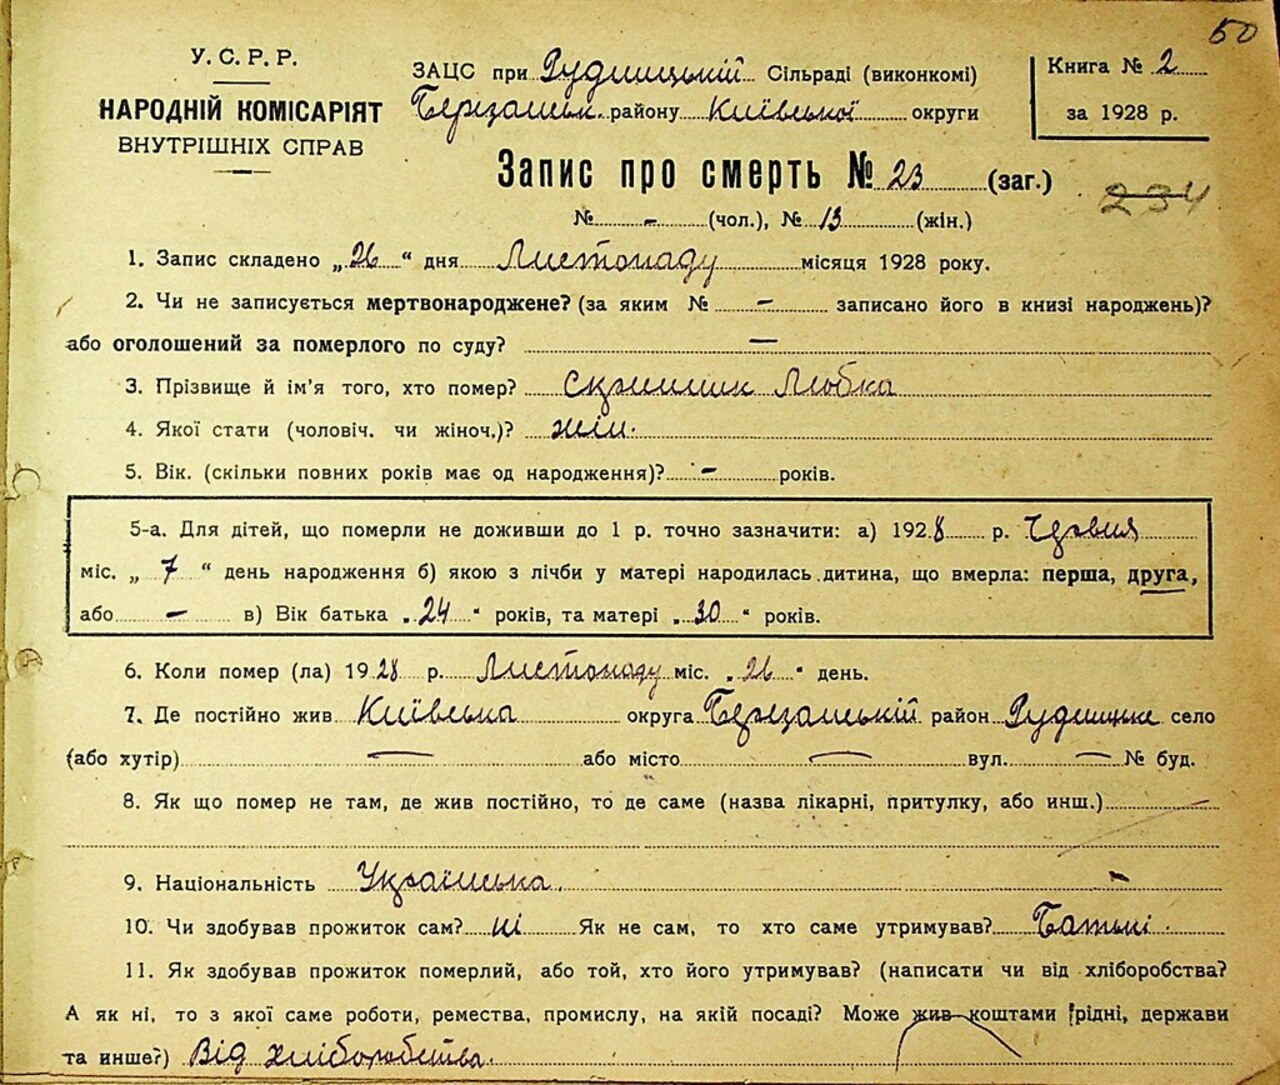 50
У. С. Р. Р.
НАРОДНІЙ КОМІСАРІЯТ
ВНУТРІШНІХ СПРАВ
ЗАЦС при Рудницькій Сільраді (виконкомі)
Березанськ. району Київської округи
Книга № 2
за 1928 р.
Запис про смерть № 23 (заг.)
234
№ - (чол.), № 13 (жін.)
1. Запис складено „26“ дня Листопаду місяця 1928 року.
2. Чи не записується мертвонароджене? (за яким № - записано його в книзі народжень)?
або оголошений за померлого по суду? —
3. Прізвище й ім'я того, хто помер? Скрипник Любка
4. Якої стати (чоловіч. чи жіноч.)? жін.
5. Вік. (скільки повних років має од народження)? - років.
5-а. Для дітей, що померли не доживши до 1 р. точно зазначити: а) 1928 р. Червня
міс. „ 7 “ день народження б) якою з лічби у матері народилась дитина, що вмерла: перша, друга,
або - в) Вік батька „24“ років, та матері „30“ років.
6. Коли помер (ла) 1928 р. Листопаду міс. „26“ день.
7. Де постійно жив Київська округа Березанський район Рудницьке село
(або хутір) — або місто — вул. — № буд.
8. Як що помер не там, де жив постійно, то де саме (назва лікарні, притулку, або инш.)
9. Національність Українська.
10. Чи здобував прожиток сам? ні Як не сам, то хто саме утримував? Батьки.
11. Як здобував прожиток померлий, або той, хто його утримував? (написати чи від хліборобства?
А як ні, то з якої саме роботи, ремества, промислу, на якій посаді? Може жив коштами рідні, держави
та инше?) Від хліборобства.